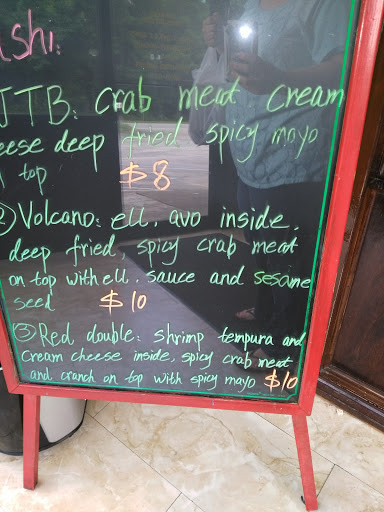 ishi:
JTB: crab meat cream
eese deep fried spicy mayo
top $8
② Volcano: ell, avo inside,
deep fried, spicy crab meat
on top with ell. sauce and sesame
seed $10
③ Red double: shrimp tempura and
cream cheese inside, spicy crab meat
and cranch on top with spicy mayo. $10